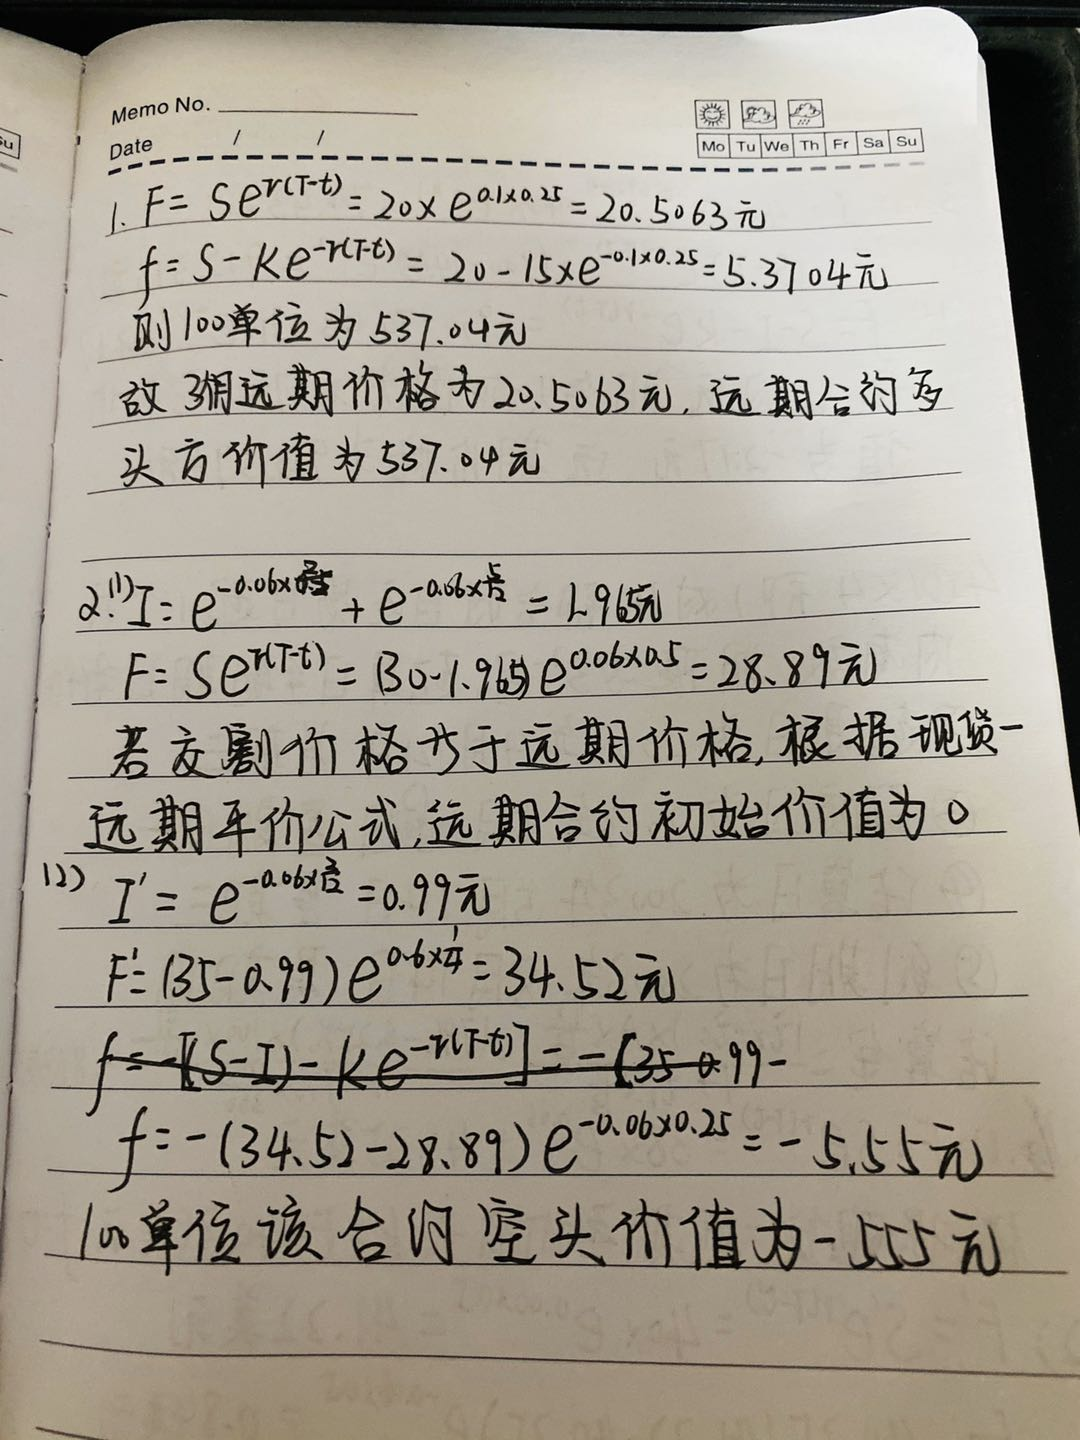 Su
Memo No.
Date / /
Mo Tu We Th Fr Sa Su
1. F= Se^{r(T-t)} = 20×e^{0.1×0.25} = 20.5063元
f= S-Ke^{-r(T-t)} = 20-15×e^{-0.1×0.25} = 5.3704元
则100单位为537.04元
故3个月远期价格为20.5063元, 远期合约多
头方价值为537.04元
2.(1) I= e^{-0.06×} + e^{-0.06×5/12} = 1.965元
F= Se^{r(T-t)} = (30-1.965)e^{0.06×0.5} = 28.89元
若交割价格等于远期价格, 根据现货-
远期平价公式, 远期合约初始价值为0
(2) I'= e^{-0.06×2/12} = 0.99元
F'= (35-0.99)e^{0.6×1/4} = 34.52元
f= -[(S-I)-Ke^{-r(T-t)}] = -[35-0.99-
f= -(34.52-28.89)e^{-0.06×0.25} = -5.55元
100单位该合约空头价值为-555元